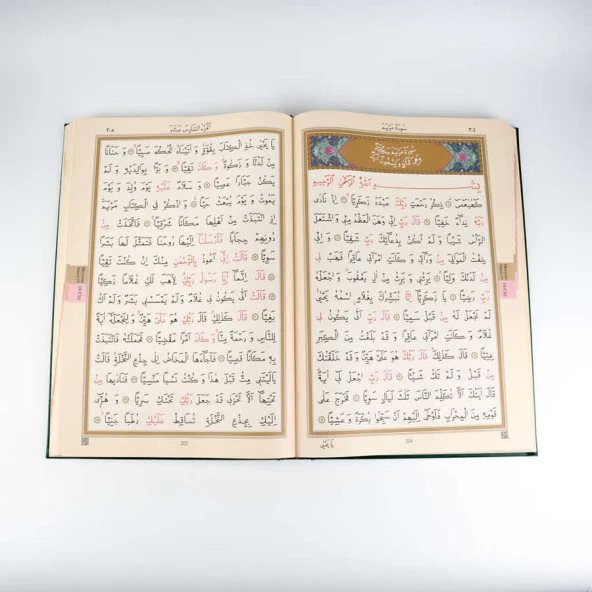 سورة مريم
سورة مريم مكية
وهي ثمان وتسعون آية
بِسْمِ اللّٰهِ الرَّحْمٰنِ الرَّحِيمِ
كٓهٰيٰعٓصٓ ۞ ذِكْرُ رَحْمَتِ رَبِّكَ عَبْدَهُ زَكَرِيَّا ۞ اِذْ نَادٰى
رَبَّهُ نِدَٓاءً خَفِيًّا ۞ قَالَ رَبِّ اِنّ۪ي وَهَنَ الْعَظْمُ مِنّ۪ي وَاشْتَعَلَ
الرَّأْسُ شَيْبًا وَلَمْ اَكُنْ بِدُعَٓائِكَ رَبِّ شَقِيًّا ۞ وَاِنّ۪ي
خِفْتُ الْمَوَالِيَ مِنْ وَرَٓاء۪ي وَكَانَتِ امْرَاَت۪ي عَاقِرًا فَهَبْ ل۪ي
مِنْ لَدُنْكَ وَلِيًّا ۞ يَرِثُن۪ي وَيَرِثُ مِنْ اٰلِ يَعْقُوبَ وَاجْعَلْهُ
رَبِّ رَضِيًّا ۞ يَا زَكَرِيَّٓا اِنَّا نُبَشِّرُكَ بِغُلَامٍ اسْمُهُ يَحْيٰى
لَمْ نَجْعَلْ لَهُ مِنْ قَبْلُ سَمِيًّا ۞ قَالَ رَبِّ اَنّٰى يَكُونُ ل۪ي
غُلَامٌ وَكَانَتِ امْرَاَت۪ي عَاقِرًا وَقَدْ بَلَغْتُ مِنَ الْكِبَرِ
عِتِيًّا ۞ قَالَ كَذٰلِكَ قَالَ رَبُّكَ هُوَ عَلَيَّ هَيِّنٌ وَقَدْ خَلَقْتُكَ
مِنْ قَبْلُ وَلَمْ تَكُ شَيْـًٔا ۞ قَالَ رَبِّ اجْعَلْ ل۪ٓي اٰيَةً
قَالَ اٰيَتُكَ اَلَّا تُكَلِّمَ النَّاسَ ثَلٰثَ لَيَالٍ سَوِيًّا ۞ فَخَرَجَ عَلٰى
قَوْمِه۪ مِنَ الْمِحْرَابِ فَاَوْحٰٓى اِلَيْهِمْ اَنْ سَبِّحُوا بُكْرَةً وَعَشِيًّا ۞
يَا يَحْيٰى
الجزء السادس عشر
يَا يَحْيٰى خُذِ الْكِتَابَ بِقُوَّةٍ وَاٰتَيْنَاهُ الْحُكْمَ صَبِيًّا ۞ وَحَنَانًا
مِنْ لَدُنَّا وَزَكٰوةً وَكَانَ تَقِيًّا ۞ وَبَرًّا بِوَالِدَيْهِ وَلَمْ
يَكُنْ جَبَّارًا عَصِيًّا ۞ وَسَلَامٌ عَلَيْهِ يَوْمَ وُلِدَ وَيَوْمَ
يَمُوتُ وَيَوْمَ يُبْعَثُ حَيًّا ۞ وَاذْكُرْ فِي الْكِتَابِ مَرْيَمَ
اِذِ انْتَبَذَتْ مِنْ اَهْلِهَا مَكَانًا شَرْقِيًّا ۞ فَاتَّخَذَتْ مِنْ
دُونِهِمْ حِجَابًا فَاَرْسَلْنَٓا اِلَيْهَا رُوحَنَا فَتَمَثَّلَ لَهَا بَشَرًا
سَوِيًّا ۞ قَالَتْ اِنّ۪ٓي اَعُوذُ بِالرَّحْمٰنِ مِنْكَ اِنْ كُنْتَ تَقِيًّا
۞ قَالَ اِنَّمَٓا اَنَا رَسُولُ رَبِّكِ لِاَهَبَ لَكِ غُلَامًا زَكِيًّا
۞ قَالَتْ اَنّٰى يَكُونُ ل۪ي غُلَامٌ وَلَمْ يَمْسَسْن۪ي بَشَرٌ وَلَمْ اَكُ
بَغِيًّا ۞ قَالَ كَذٰلِكِ قَالَ رَبُّكِ هُوَ عَلَيَّ هَيِّنٌ وَلِنَجْعَلَهُٓ اٰيَةً
لِلنَّاسِ وَرَحْمَةً مِنَّا وَكَانَ اَمْرًا مَقْضِيًّا ۞ فَحَمَلَتْهُ فَانْتَبَذَتْ
بِه۪ مَكَانًا قَصِيًّا ۞ فَاَجَٓاءَهَا الْمَخَاضُ اِلٰى جِذْعِ النَّخْلَةِ قَالَتْ
يَا لَيْتَن۪ي مِتُّ قَبْلَ هٰذَا وَكُنْتُ نَسْيًا مَنْسِيًّا ۞ فَنَادٰيهَا مِنْ
تَحْتِهَٓا اَلَّا تَحْزَن۪ي قَدْ جَعَلَ رَبُّكِ تَحْتَكِ سَرِيًّا ۞ وَهُزّ۪ٓي
اِلَيْكِ بِجِذْعِ النَّخْلَةِ تُسَاقِطْ عَلَيْكِ رُطَبًا جَنِيًّا ۞